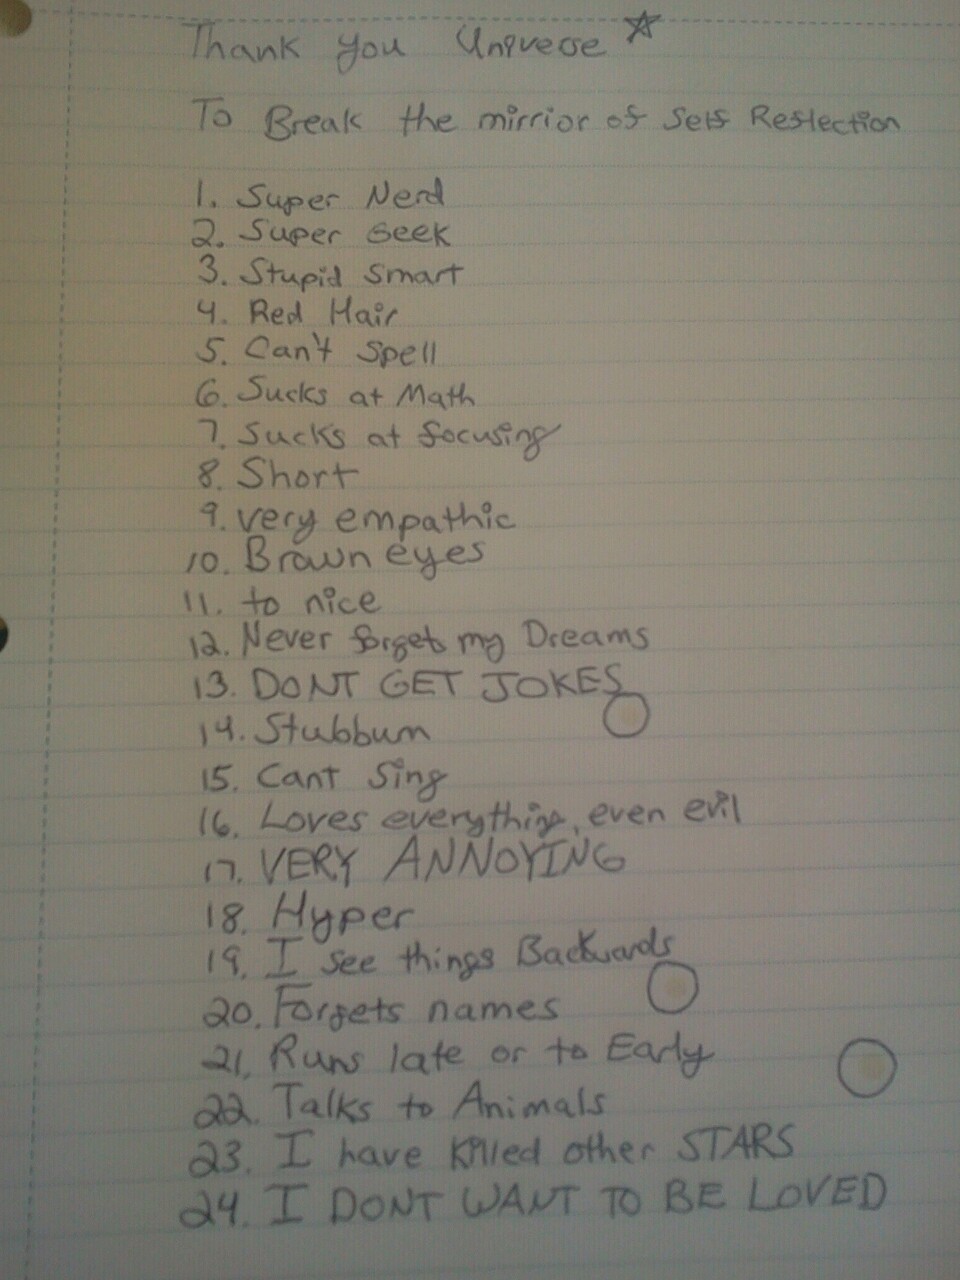 Thank you Universe
To Break the mirrior of Self Reflection
1. Super Nerd
2. Super Geek
3. Stupid Smart
4. Red Hair
5. Can't Spell
6. Sucks at Math
7. Sucks at focusing
8. Short
9. very empathic
10. Brown eyes
11. to nice
12. Never forget my Dreams
13. DONT GET JOKES
14. Stubburn
15. Cant Sing
16. Loves everything, even evil
17. VERY ANNOYING
18. Hyper
19. I see things Backwards
20. Forgets names
21. Runs late or to Early
22. Talks to Animals
23. I have Killed other STARS
24. I DONT WANT TO BE LOVED